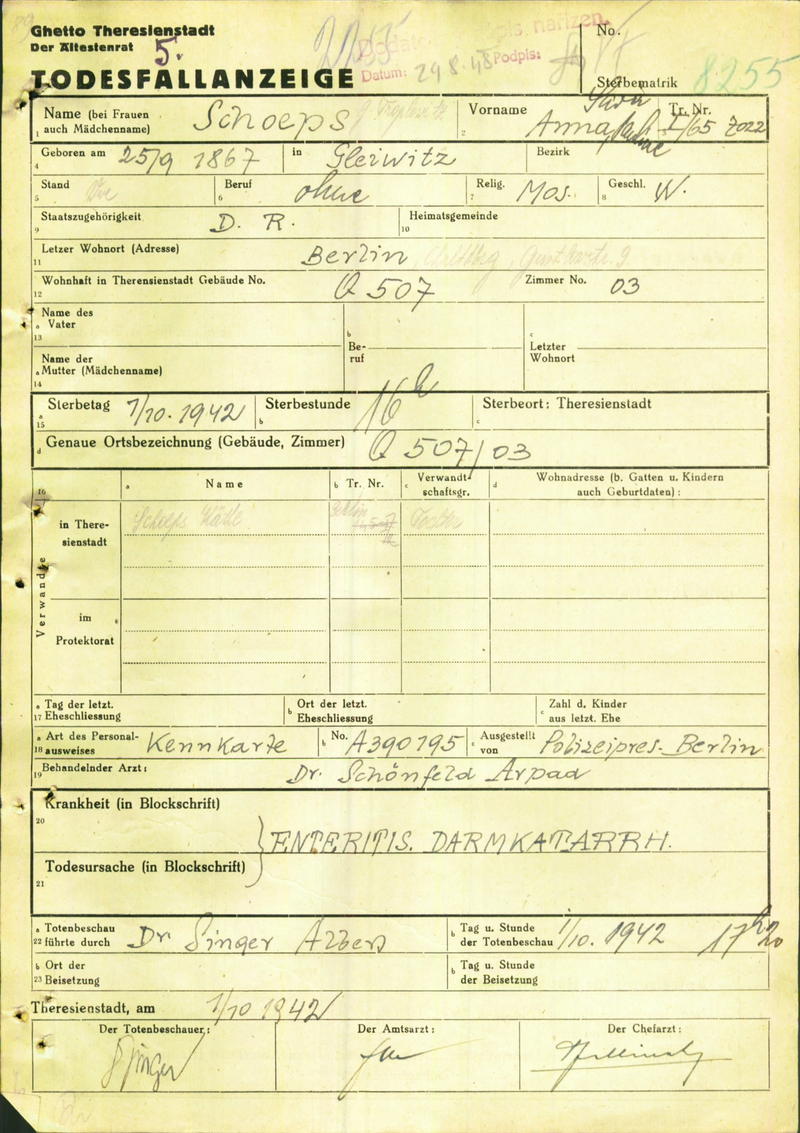 Ghetto Theresienstadt
Der Ältestenrat
5.
No.
Datum: 29 8. 48 Podpis:
TODESFALLANZEIGE
Sterbematrik 8255
Name (bei Frauen auch Mädchenname) Schoeps
1
Vorname Anna Sara
2
Tr. Nr. I/65 7022
Geboren am 25/9 1867 in Gleiwitz Bezirk
4
Stand Beruf ohne Relig. Mos. Geschl. W.
5 6 7 8
Staatszugehörigkeit D. R. Heimatsgemeinde
9 10
Letzer Wohnort (Adresse) Berlin
11
Wohnhaft in Theresienstadt Gebäude No. Q 507 Zimmer No. 03
12
Name des
a Vater
13
b Beruf
c Letzter Wohnort
Name der
a Mutter (Mädchenname)
14
Sterbetag 1/10. 1942 Sterbestunde 16 h Sterbeort: Theresienstadt
a 15 b c
d Genaue Ortsbezeichnung (Gebäude, Zimmer) Q 507/03
16 a Name b Tr. Nr. c Verwandtschaftsgr. d Wohnadresse (b. Gatten u. Kindern auch Geburtdaten) :
Verwandte
in Theresienstadt Schoeps Käthe Berlin Tochter
im Protektorat
a Tag der letzt. b Ort der letzt. c Zahl d. Kinder
17 Eheschliessung Eheschliessung aus letzt. Ehe
a Art des Personal- b No. A390795 c Ausgestellt
18 ausweises Kennkarte von Polizeipres. Berlin
19 Behandelnder Arzt: Dr. Schönfeld Arpad
Krankheit (in Blockschrift)
20
ENTERITIS. DARMKATARRH.
Todesursache (in Blockschrift)
21
a Totenbeschau b Tag u. Stunde
22 führte durch Dr Singer der Totenbeschau 1/10. 1942 17 h 20
b Ort der b Tag u. Stunde
23 Beisetzung der Beisetzung
Theresienstadt, am 1/10 1942
Der Totenbeschauer: Der Amtsarzt: Der Chefarzt:
Singer